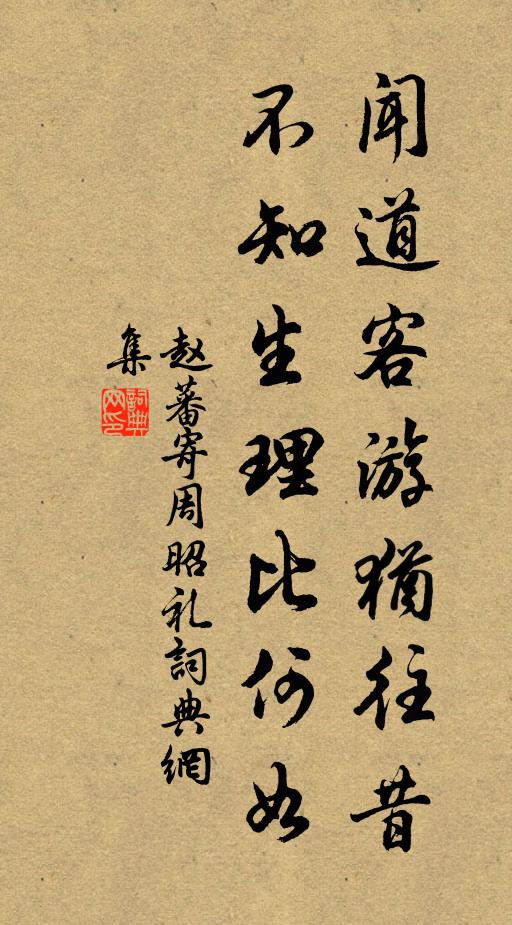 闻道客游猶往昔
不知生理比何如
赵蕃寄周昭礼詞典網
集
詞典
网印